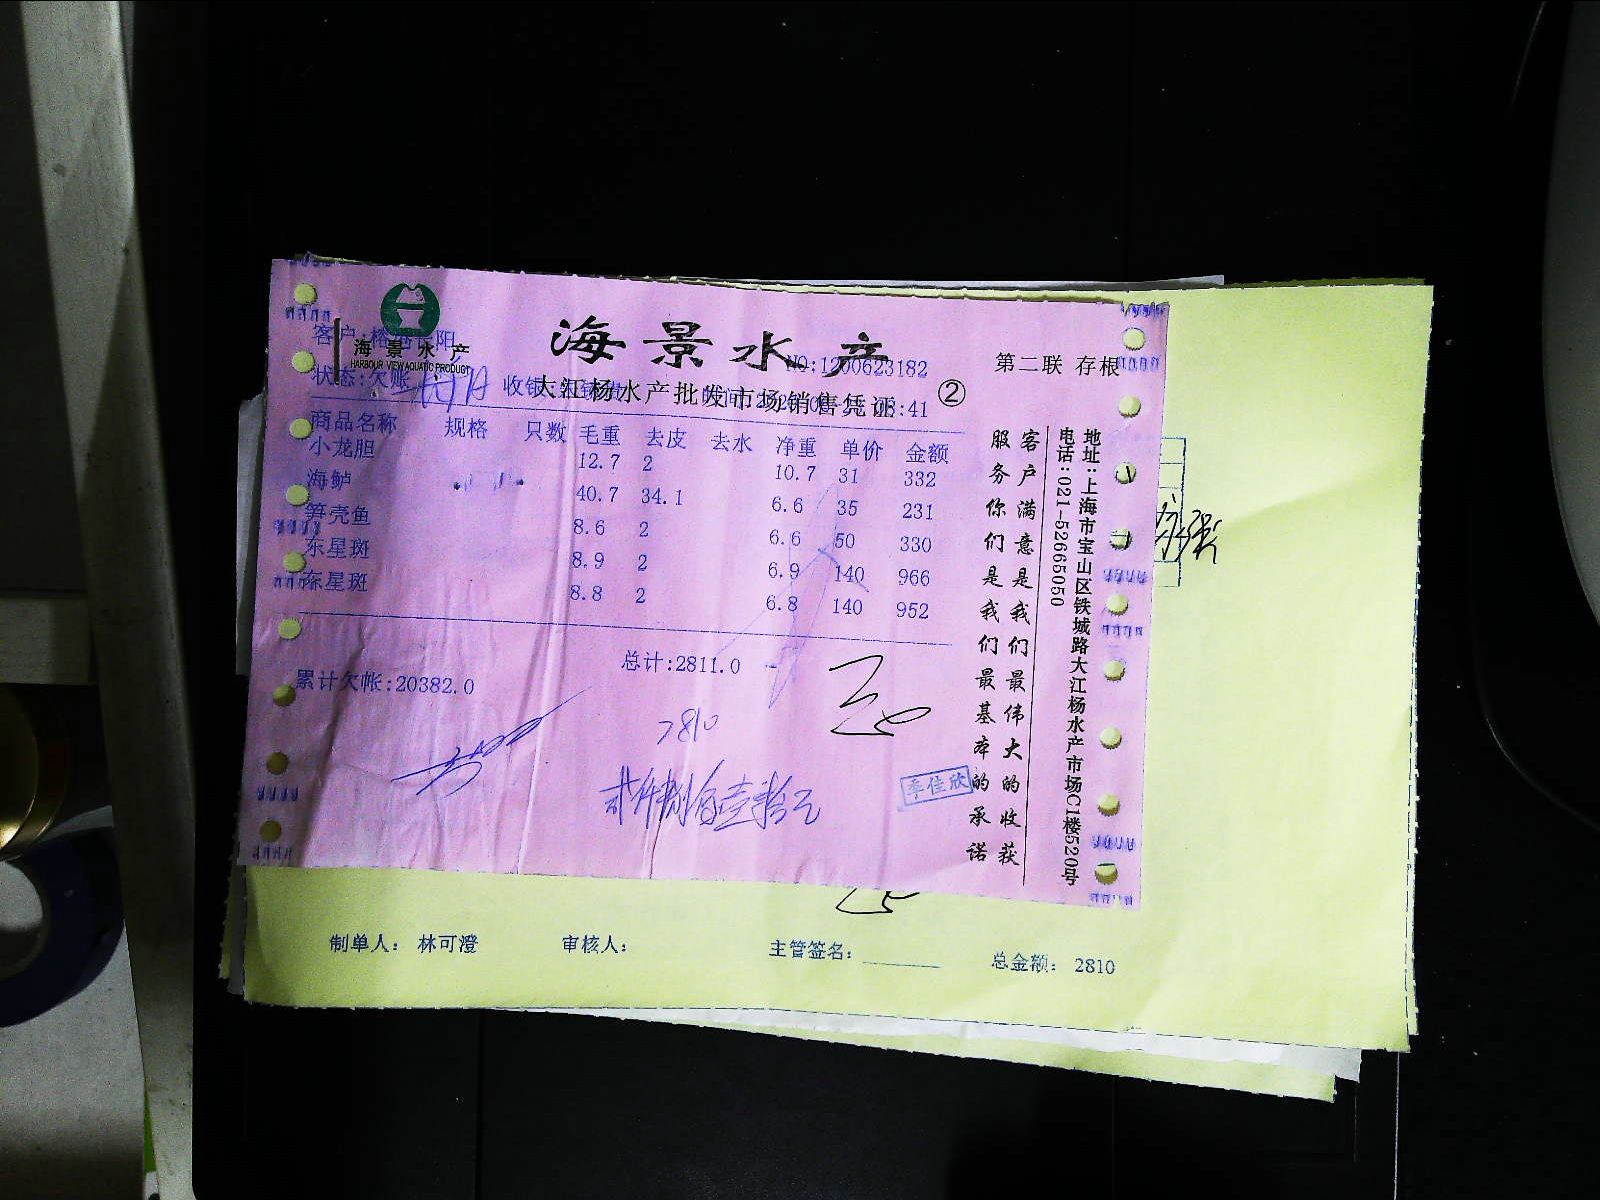 海景水产
HARBOUR VIEW AQUATIC PRODUCT
海景水产
NO:1200623182
第二联 存根
客户:
状态:欠账
收银:
大江杨水产批发市场销售凭证
②
商品名称 规格 只数 毛重 去皮 去水 净重 单价 金额
小龙胆 12.7 2 10.7 31 332
海鲈 40.7 34.1 6.6 35 231
笋壳鱼 8.6 2 6.6 50 330
东星斑 8.9 2 6.9 140 966
东星斑 8.8 2 6.8 140 952
总计:2811.0
累计欠帐:20382.0
2810
贰仟捌佰壹拾元
季佳欣
客户满意是我们最伟大的收获
服务你们是我们最基本的承诺
地址:上海市宝山区铁城路大江杨水产市场C1楼520号
电话:021-52665050
制单人: 林可澄 审核人: 主管签名: 总金额: 2810